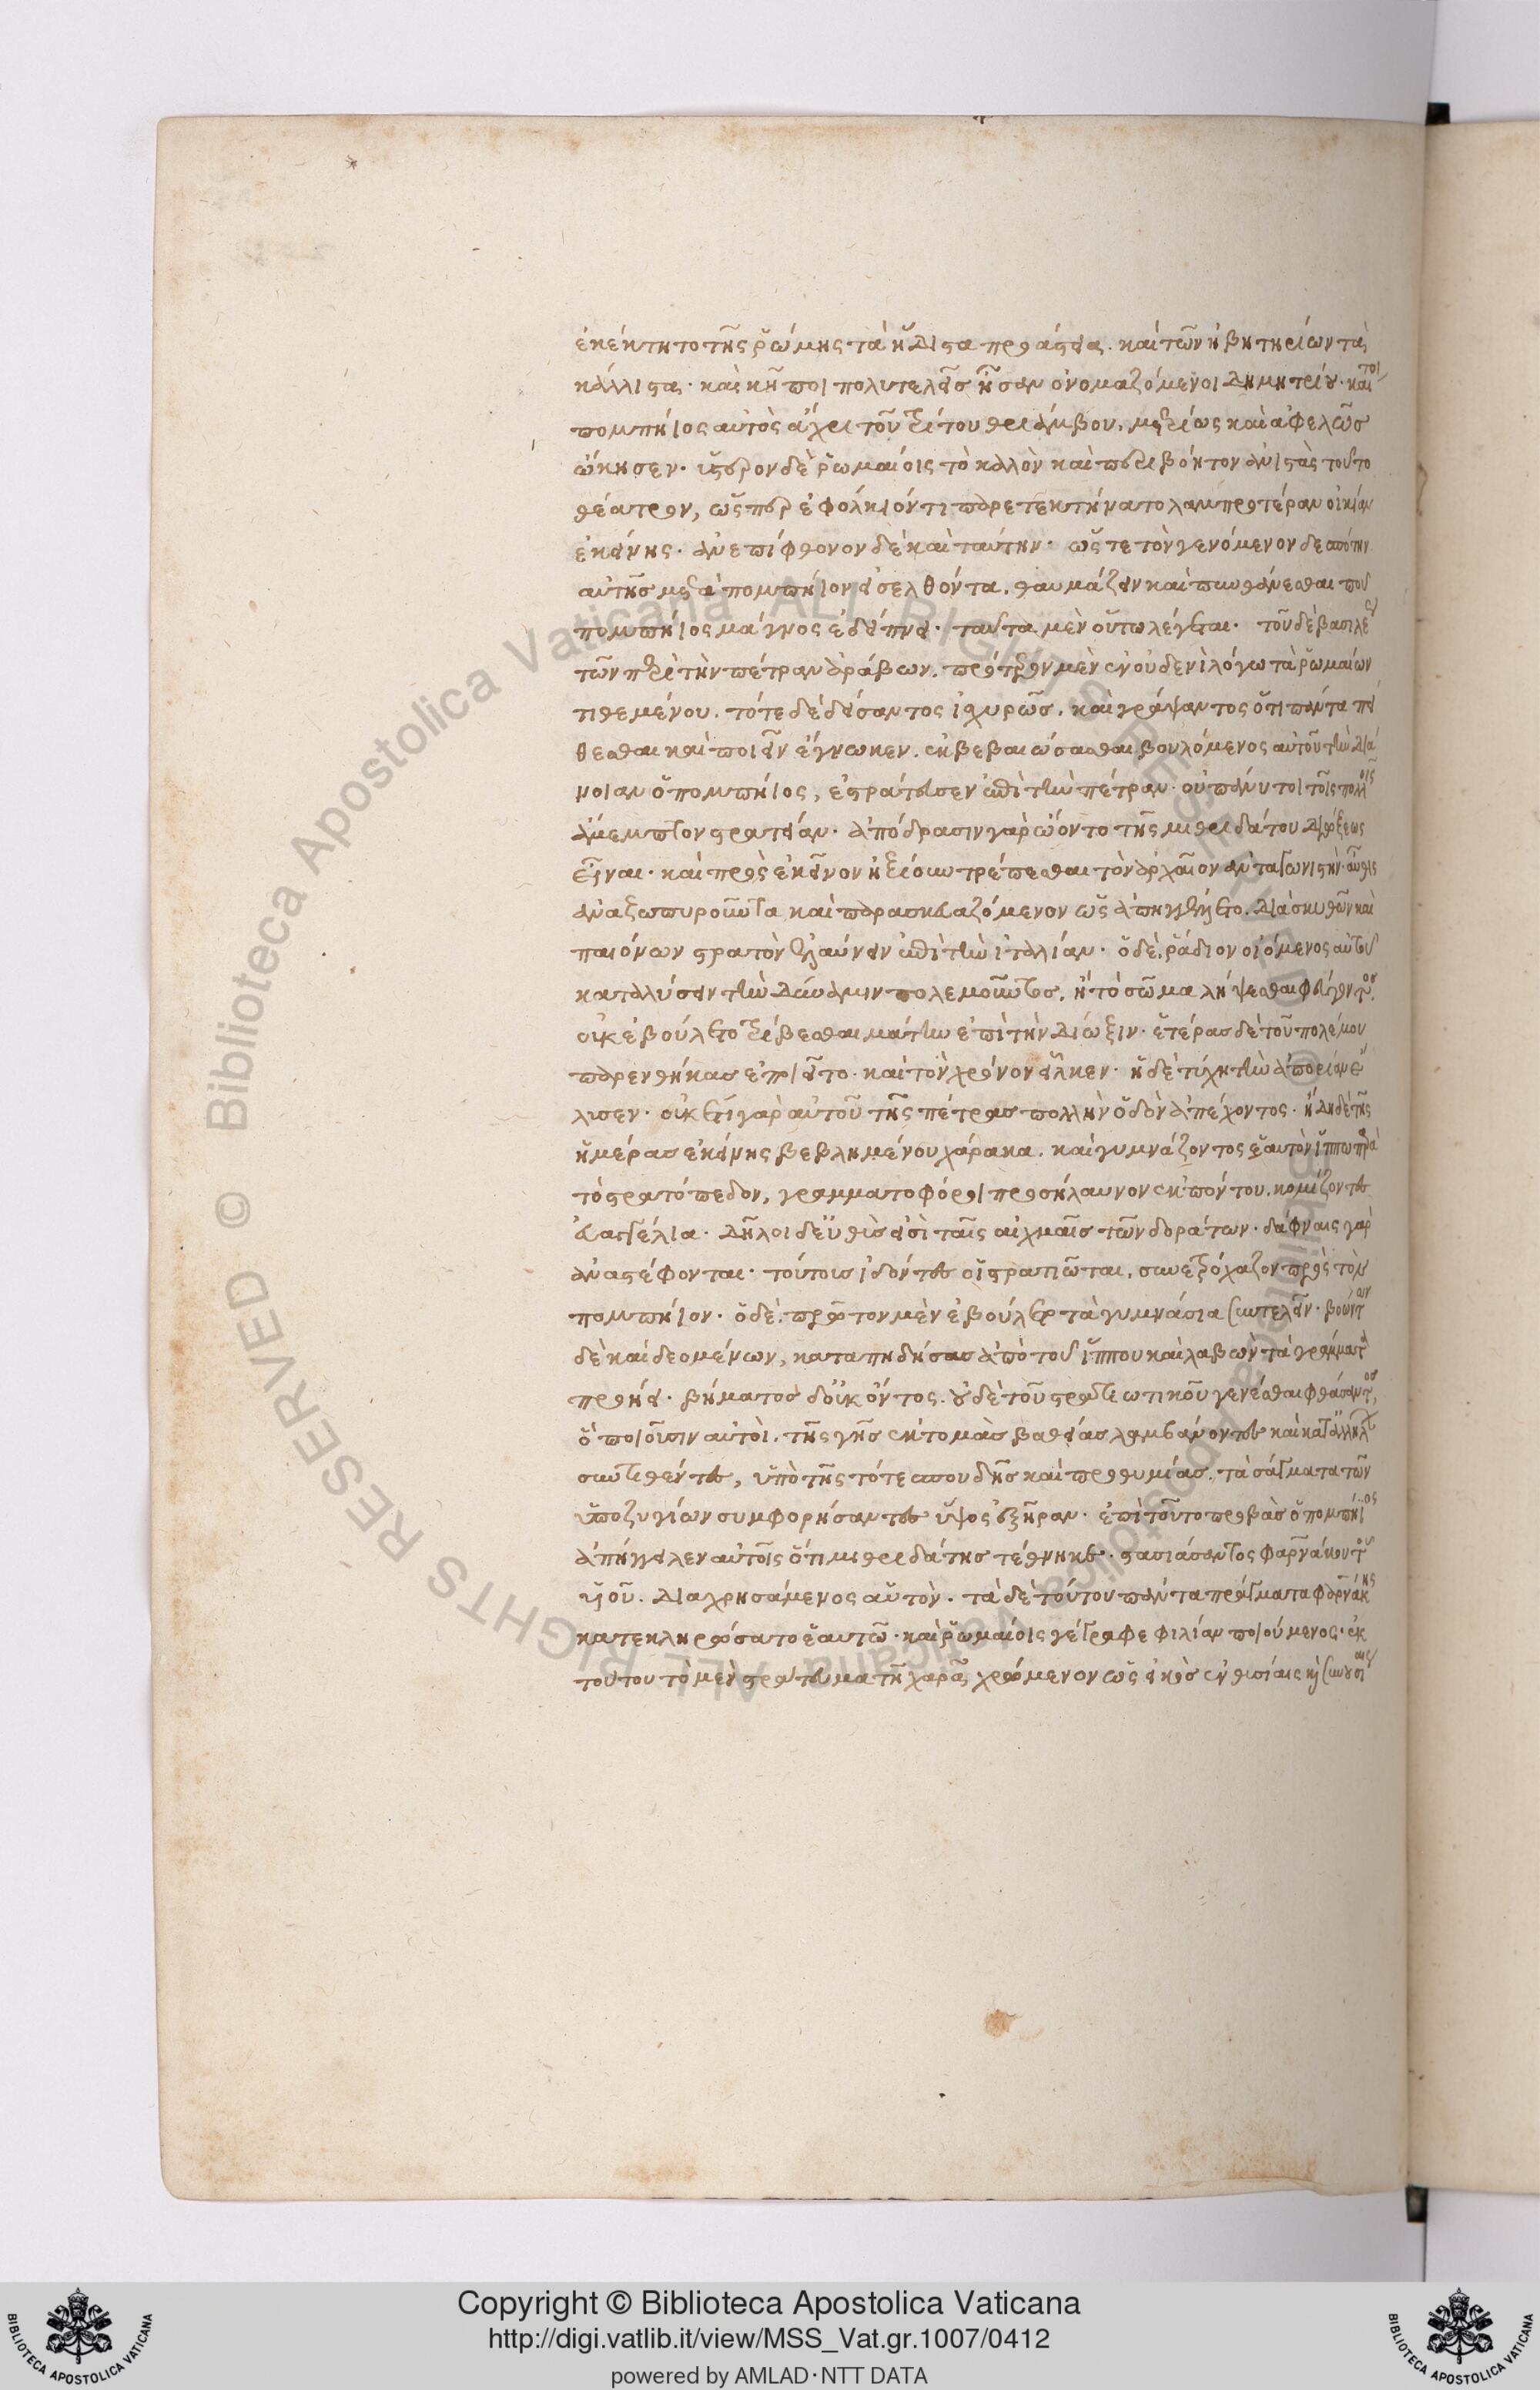 ἐκέκτητο τῆς ῥώμης τὰ ἥδιστα προάστεια. καὶ τῶν ἡβητηρίων τὰ
κάλλιστα. καὶ κῆποι πολυτελεῖς ἦσαν ὀνομαζόμενοι δημητρίου. καίτοι
πομπήϊος αὐτὸς ἄχρι τοῦ τρίτου θριάμβου, μετρίως καὶ ἀφελῶς
ᾤκησεν. ὕστερον δὲ ῥωμαίοις τὸ καλὸν καὶ περιβόητον ἀνιστὰς τοῦτο
θέατρον, ὥσπερ ἐφόλκιόν τι παρετεκτήνατο λαμπροτέραν οἰκίαν
ἐκείνης. ἀνεπίφθονον δὲ καὶ ταύτην. ὥστε τὸν γενόμενον δεσπότην
αὐτῆς μετὰ πομπήϊον εἰσελθόντα, θαυμάζειν καὶ πυνθάνεσθαι ποῦ
πομπήϊος μάγνος ἐδείπνει. ταῦτα μὲν οὕτω λέγεται. τοῦ δὲ βασιλέως
τῶν περὶ τὴν πέτραν ἀράβων, πρότερον μὲν ἐν οὐδενὶ λόγω τὰ ῥωμαίων
τιθεμένου. τότε δὲ δείσαντος ἰσχυρῶς, καὶ γράψαντος ὅτι πάντα πεί
θεσθαι καὶ ποιεῖν ἔγνωκεν. ἐκβεβαιώσασθαι βουλόμενος αὐτοῦ τὴν διά
νοιαν ὁ πομπήϊος, ἐστράτευσεν ἐπὶ τὴν πέτραν. οὐ πάνυ τοι τοῖς πολλοῖς
ἄμεμπτον στρατείαν. ἀπόδρασιν γὰρ ὤοντο τῆς μιθριδάτου διώξεως
εἶναι. καὶ πρὸς ἐκεῖνον ἠξίουν τρέπεσθαι τὸν ἀρχαῖον ἀνταγωνιστὴν. αὖθις
ἀναζωπυροῦντα καὶ παρασκευαζόμενον ὡς ἀπηγγέλλετο. διὰ σκυθῶν καὶ
παιόνων στρατὸν ἐλαύνειν ἐπὶ τὴν ἰταλίαν. ὁ δὲ, ῥάδιον οἰόμενος αὐτοῦ
καταλύσειν τὴν δύναμιν πολεμοῦντος, ἢ τὸ σῶμα λήψεσθαι φεύγοντος.
οὐκ ἐβούλετο τρίβεσθαι μάτην ἐπὶ τὴν δίωξιν. ἑτέρας δὲ τοῦ πολέμου
παρενθήκας ἐποιεῖτο. καὶ τὸν χρόνον εἷλκεν. ἡ δὲ τύχη τὴν ἀπορίαν ἔ
λυσεν. οὐκέτι γὰρ αὐτοῦ τῆς πέτρας πολλὴν ὁδὸν ἀπέχοντος. ἤδη δὲ τῆς
ἡμέρας ἐκείνης βεβλημένου χάρακα, καὶ γυμνάζοντος ἑαυτὸν ἵππω παρὰ
τὸ στρατόπεδον, γραμματοφόροι προσήλαυνον ἐκ πόντου, κομίζοντες
εὐαγγέλια. δῆλοι δ' εὐθὺς εἰσὶ ταῖς αἰχμαῖς τῶν δοράτων. δάφναις γὰρ
ἀναστέφονται. τούτους ἰδόντες οἱ στρατιῶται, συνετρόχαζον πρὸς τὸν
πομπήϊον. ὁ δὲ, πρῶτον μὲν ἐβούλετο τὰ γυμνάσια συντελεῖν. βοώντων
δὲ καὶ δεομένων, καταπηδήσας ἀπὸ τοῦ ἵππου καὶ λαβὼν τὰ γράμματα
προήει. βήματος δ' οὐκ ὄντος, οὐδὲ τοῦ στρατιωτικοῦ γενέσθαι φθάσαντος,
ὃ ποιοῦσιν αὐτοὶ, τῆς γῆς ἐκτομὰς βαθείας λαμβάνοντες καὶ κατ' ἀλλήλων
συντιθέντες, ὑπὸ τῆς τότε σπουδῆς καὶ προθυμίας, τὰ σάγματα τῶν
ὑποζυγίων συμφορήσαντες ὕψος ἐξῆραν. ἐπὶ τοῦτο προβὰς ὁ πομπήϊος
ἀπήγγειλεν αὐτοῖς ὅτι μιθριδάτης τέθνηκε. στασιάσαντος φαρνάκου τοῦ
υἱοῦ. διαχρησάμενος αὑτὸν. τὰ δὲ τούτου πάντα πράγματα φαρνάκης
κατεκληρώσατο ἑαυτῶ. καὶ ῥωμαίοις γέγραφε φιλίαν ποιούμενος. ἐκ
τούτου τὸ μὲν στράτευμα τῆ χαρᾶ, χρώμενον ὡς εἰκὸς ἐν θυσίαις καὶ συνουσίαις
Copyright © Biblioteca Apostolica Vaticana
http://digi.vatlib.it/view/MSS_Vat.gr.1007/0412
powered by AMLAD·NTT DATA
BIBLIOTECA APOSTOLICA VATICANA
BIBLIOTECA APOSTOLICA VATICANA
© Biblioteca Apostolica Vaticana ALL RIGHTS RESERVED
© Biblioteca Apostolica Vaticana ALL RIGHTS RESERVED